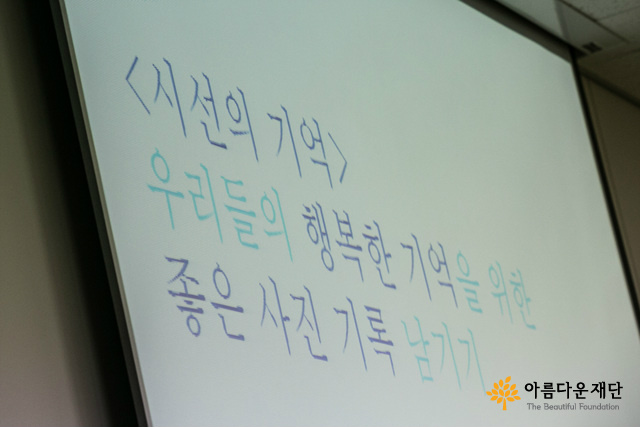 <시선의 기억>
우리들의 행복한 기억을 위한
좋은 사진 기록 남기기
아름다운재단
The Beautiful Foundation